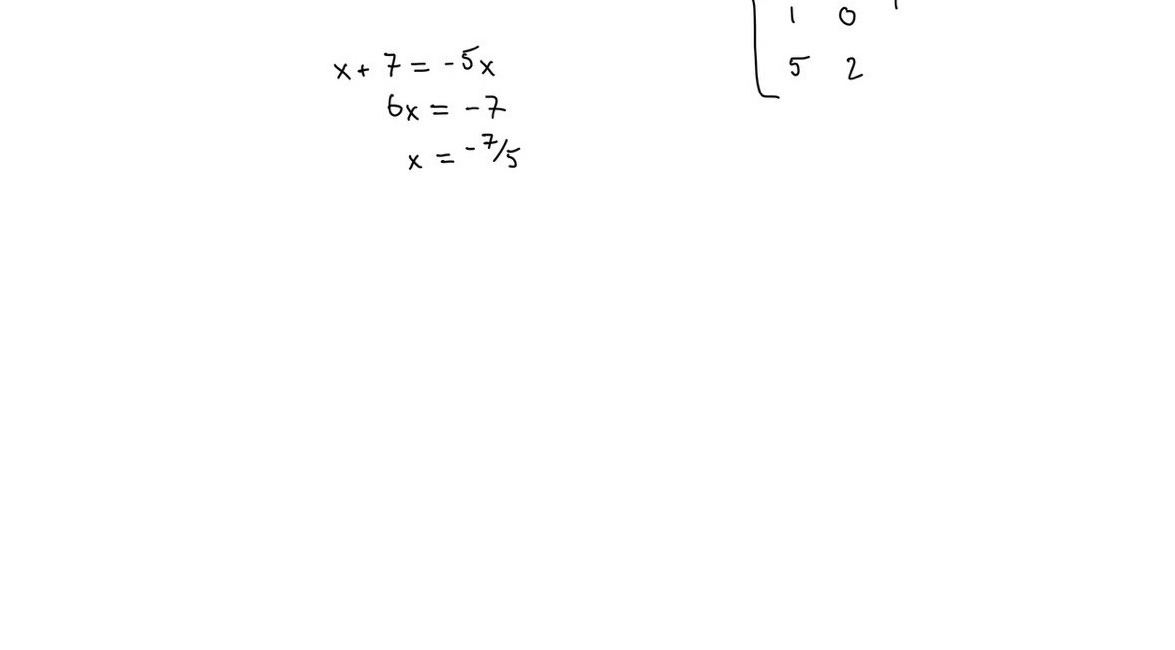 x + 7 = -5x
6x = -7
x = -7/5
1 0
5 2